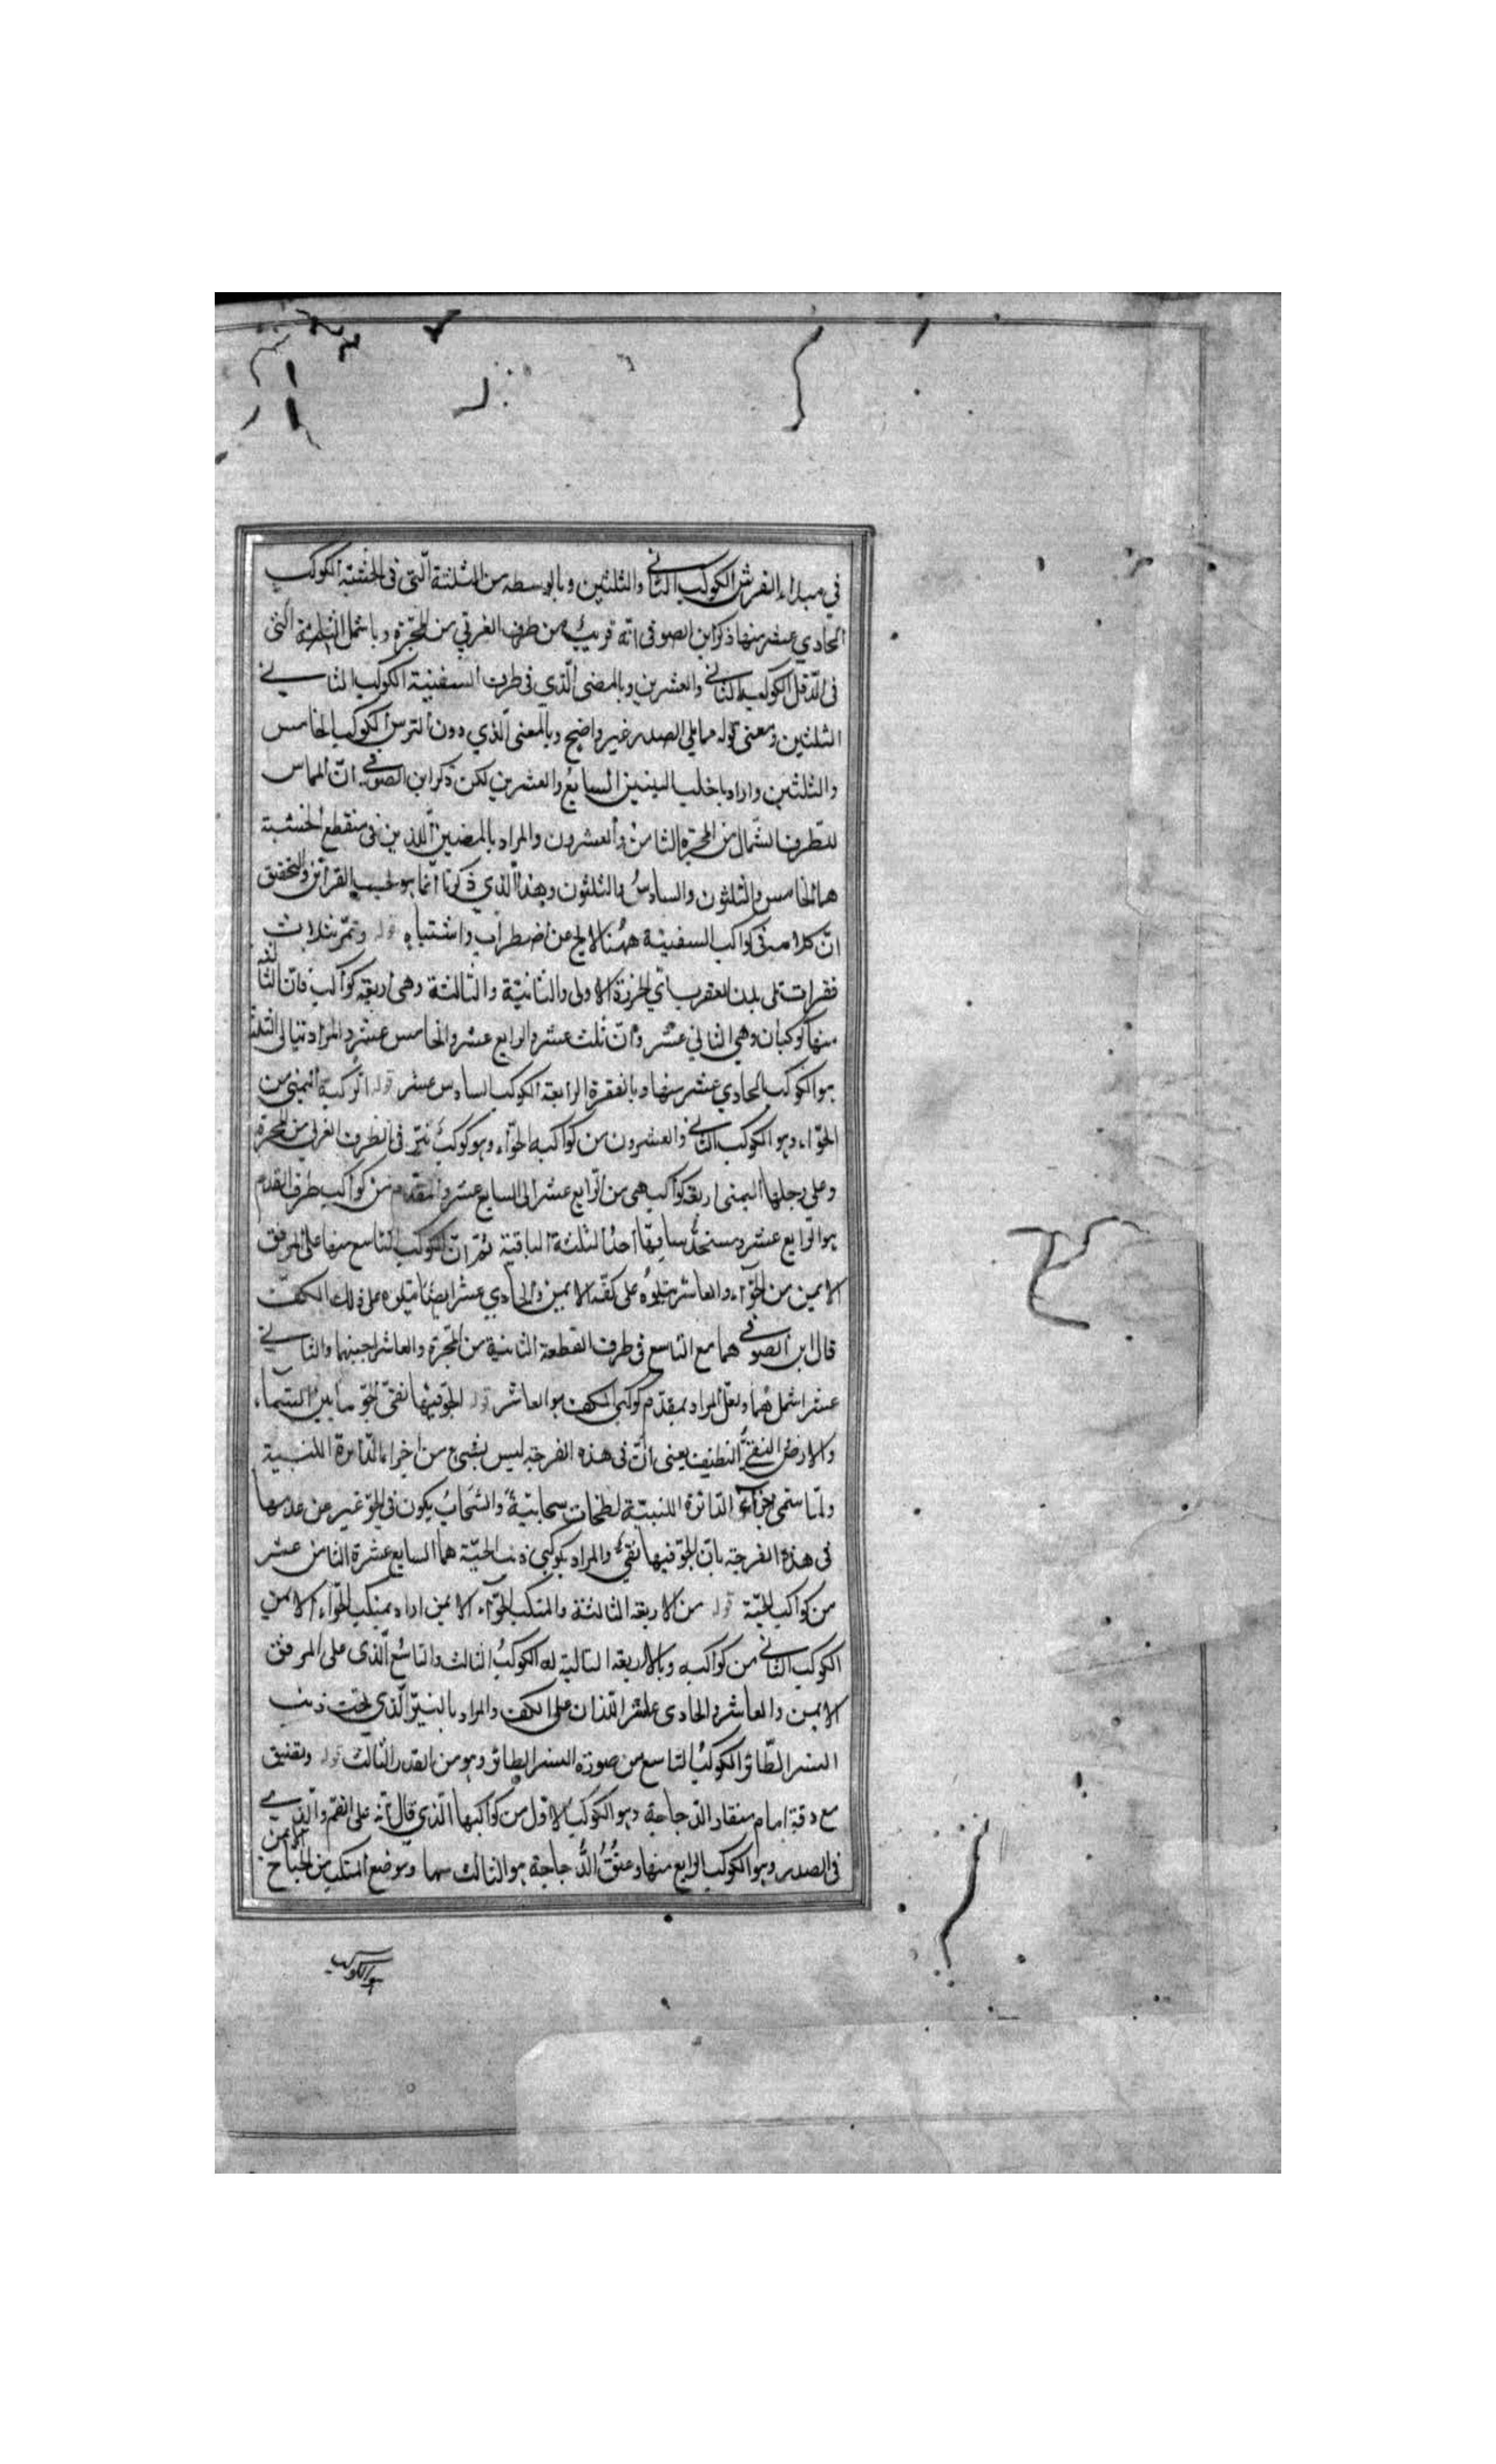 في مبداء الفرش الكوكب الثاني والثلثين وبالوسطه من الثلثة التي في الخشبة الكوكب
الحادي عشر منها ذكر ابن الصوفى انه قريب من طرف الغرقي من المجرة وباشمل الثلثة التي
فى الدقل الكوكب الثاني والعشرين وبالمضى الذي فى طرف السفينة الكوكب الثاني
الثلثين ومعنى قوله مما يلي الصدر غير واضح وبالمعنى الذي دون الترس الكوكب الخامس
والثلثين واراد باخلب السابع والعشرين لكن ذكر ابن الصوفي ان المماس
للطرف الشمال من المجرة الثامن والعشرون والمراد بالمضيين اللذين فى منقطع الخشبة
هما الخامس والثلثون والسادس والثلثون وهذا الذي ذكرنا انما هو بحسب القرائن والتحقيق
ان كلامه فى كواكب السفينة ههنا لا يخ عن اضطراب واشتباه قوله وتمر بثلاث
فقرات تلى بدن العقرب اي الخرزة الاولى والثانية والثالثة وهى اربعة كواكب فان الثالثة
منها كوكبان وهي الثاني عشر وان ثلث عشر والرابع عشر والخامس عشر والمراد تيالى الثلثة
هو الكوكب الحادي عشر منها وبالفقرة الرابعة الكوكب السادس عشر قوله الركبة اليمنى من
الحواء وهو الكوكب الثاني والعشرون من كواكبه الحواء وهو كوكب نير فى الطرف الغربي من المجرة
وعلى رجلها اليمنى اربعة كواكب هى من الرابع عشر الى السابع عشر والمقدم من كواكب طرف القدم
هو الرابع عشر ومسنحد ساقها احد الثلثة الباقية ثم ان الكوكب التاسع منها على المرفق
الايمن من الحواء والعاشر يتلوه على كفه الايمن والحادي عشر ايضا يتلوه على ذلك الكف
قال ابن الصوفي هما مع التاسع فى طرف القطعة الثانية من المجرة والعاشر اجنبهما والثاني
عشر اشملهما ولعل المراد بمقدم كوكبي الكف هو العاشر قوله الجو فيها نقى الجو ما بين السماء
والارض النقي النظيف يعنى ان فى هذه الفرجة ليس بشيئ من اجزاء الدائرة اللبنية
ولما سمى اجزاء الدائرة اللبنية لطخات سحابية والسحاب يكون في الجو غير عن عدمها
فى هذه الفرجة بان الجو فيها نقي والمراد بكوكبى ذنب الحية هما السابع عشرة الثامن عشر
من كواكب الحية قوله من الاربعة الثالثة والمنكب الحواء الايمن اراد بمنكب الحواء الايمن
الكوكب الثاني من كواكبه وبالاربعة التالية له الكوكب الثالث والتاسع الذى على المرفق
الايمن والعاشر والحادى عشر اللذان على الكف والمراد بالنير الذي تحت ذنب
النسر الطائر الكوكب التاسع من صورة النسر الطائر وهو من القدر الثالث قوله وتضيق
مع دقة امام منقار الدجاجة وهو الكوكب الاول من كواكبها الذي قال انه على الفم والذي
فى الصدر وهو الكوكب الرابع منها وعنق الدجاجة هو الثالث منها وموضع المنكب من الجناح الايمن
هو الكوكب